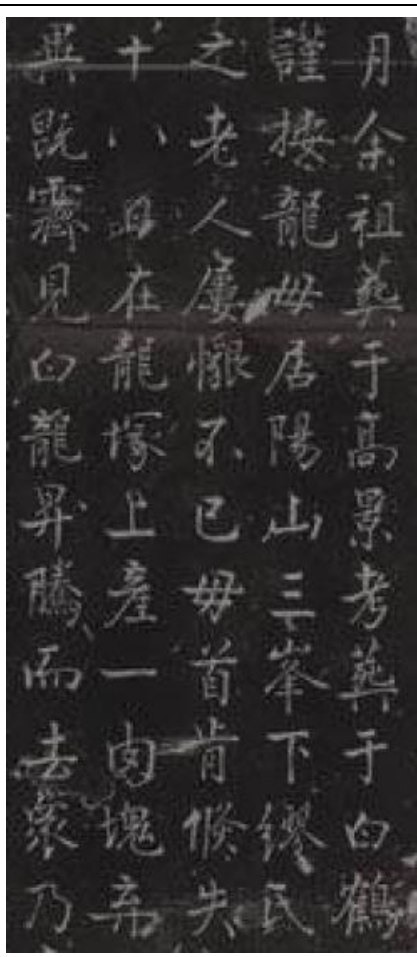 月余祖葬于高景考葬于白鶴
謹按龍母居陽山三峯下繆氏
之老人屢懇不已毋首肯倏失
十八日在龍塚上產一肉塊弃
異既霽見白龍昇騰而去衆乃